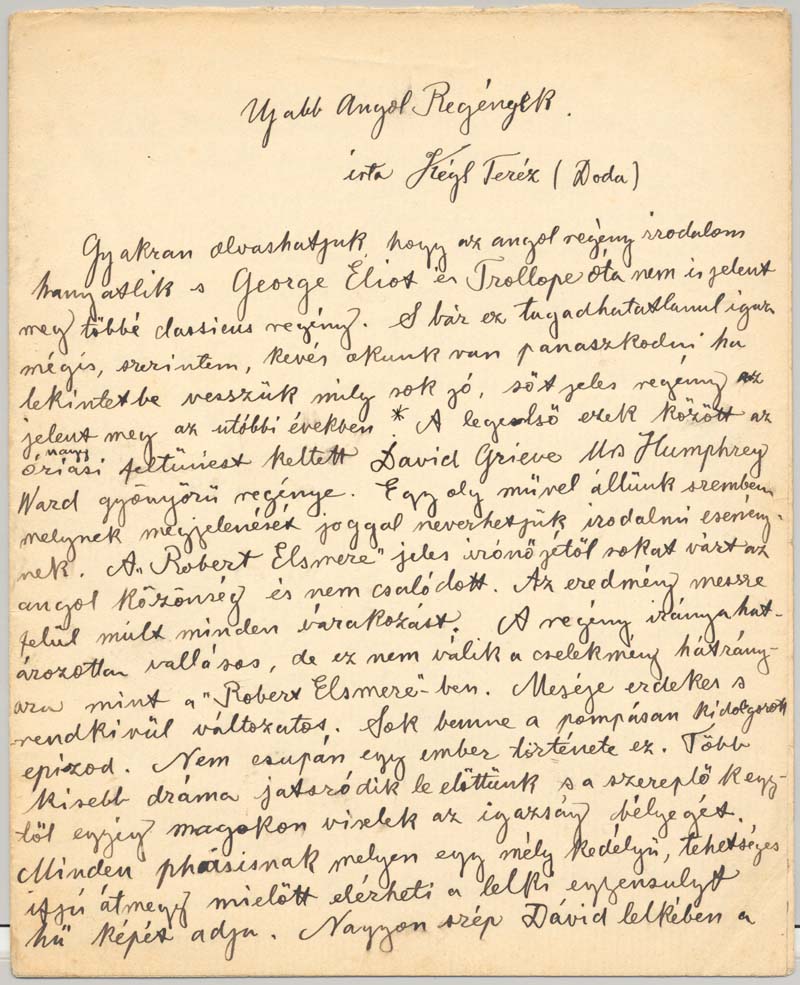 Ujabb Angol Regények.
irta Kégl Teréz (Doda)
Gyakran olvashatjuk, hogy az angol regény irodalom
hanyatlik s George Eliot és Trollope óta nem is jelent
meg többé classicus regény. S bár ez tagadhatatlanul igaz
mégis, szerintem, kevés okunk van panaszkodni ha
tekintetbe vesszük mily sok jó, sőt jeles regény az
jelent meg az utóbbi években * A legelső ezek között az
nagy
óriási feltünést keltett David Grieve Mrs Humphrey
Ward gyönyörü regénye. Egy oly művel állunk szemben
melynek megjelenését joggal nevezhetjük irodalmi esemény-
nek. A "Robert Elsmere" jeles irónőjétől sokat várt az
angol közönség és nem csalódott. Az eredmény messze
felül mult minden várakozást. A regény iránya hat-
ározottan vallásos, de ez nem válik a cselekmény hátrány-
ára mint a "Robert Elsmere"-ben. Meséje érdekes s
rendkivül változatos. Sok benne a pompásan kidolgozott
epizod. Nem csupán egy ember története ez. Több
kisebb dráma játszódik le előttünk s a szereplők egy-
től egyig magokon viselek az igazság bélyegét.
Minden phásisnak melyen egy mély kedélyü, tehetséges
ifjú átmegy mielőtt elérheti a lelki egyensulyt
hű képét adja. Nagyon szép Dávid lelkében a